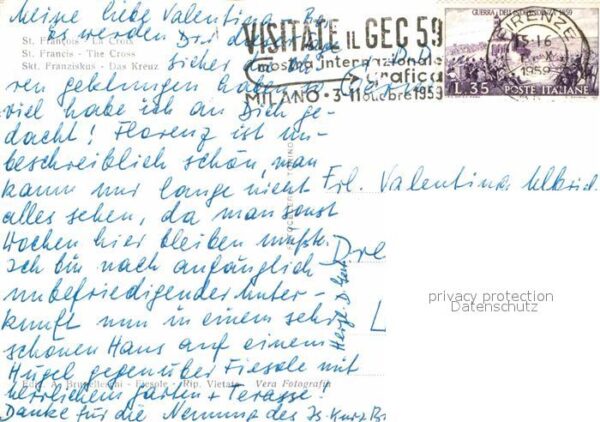 Meine liebe Valentina
es werden Dir
St. François - La Croix
St. Francis - The Cross
sicher
Skt. Franziskus - Das Kreuz
ren geklungen haben, so
viel habe ich an Dich ge-
dacht! Florenz ist un-
beschreiblich schön, man
kann nur lange nicht
alles sehen, da man sonst
Wochen hier bleiben müsste.
Ich bin nach anfänglich
unbefriedigender Unter-
kunft nun in einem sehr
schönen Haus auf einem
Hügel gegenüber Fiesole mit
Fiesole - Rip. Vietata Vera Fotografia
herrlichem Garten + Terasse!
Danke für die Nennung des
VISITATE IL GEC 59
mostra internazionale
grafica
MILANO • 3-11 ottobre 1959
GUERRA DELL'INDIPENDENZA 1859
L.35 POSTE ITALIANE
FIRENZE
15-16
1959
Frl. Valentina Ulbrich
Dre
L
Herzl.
privacy protection
Datenschutz